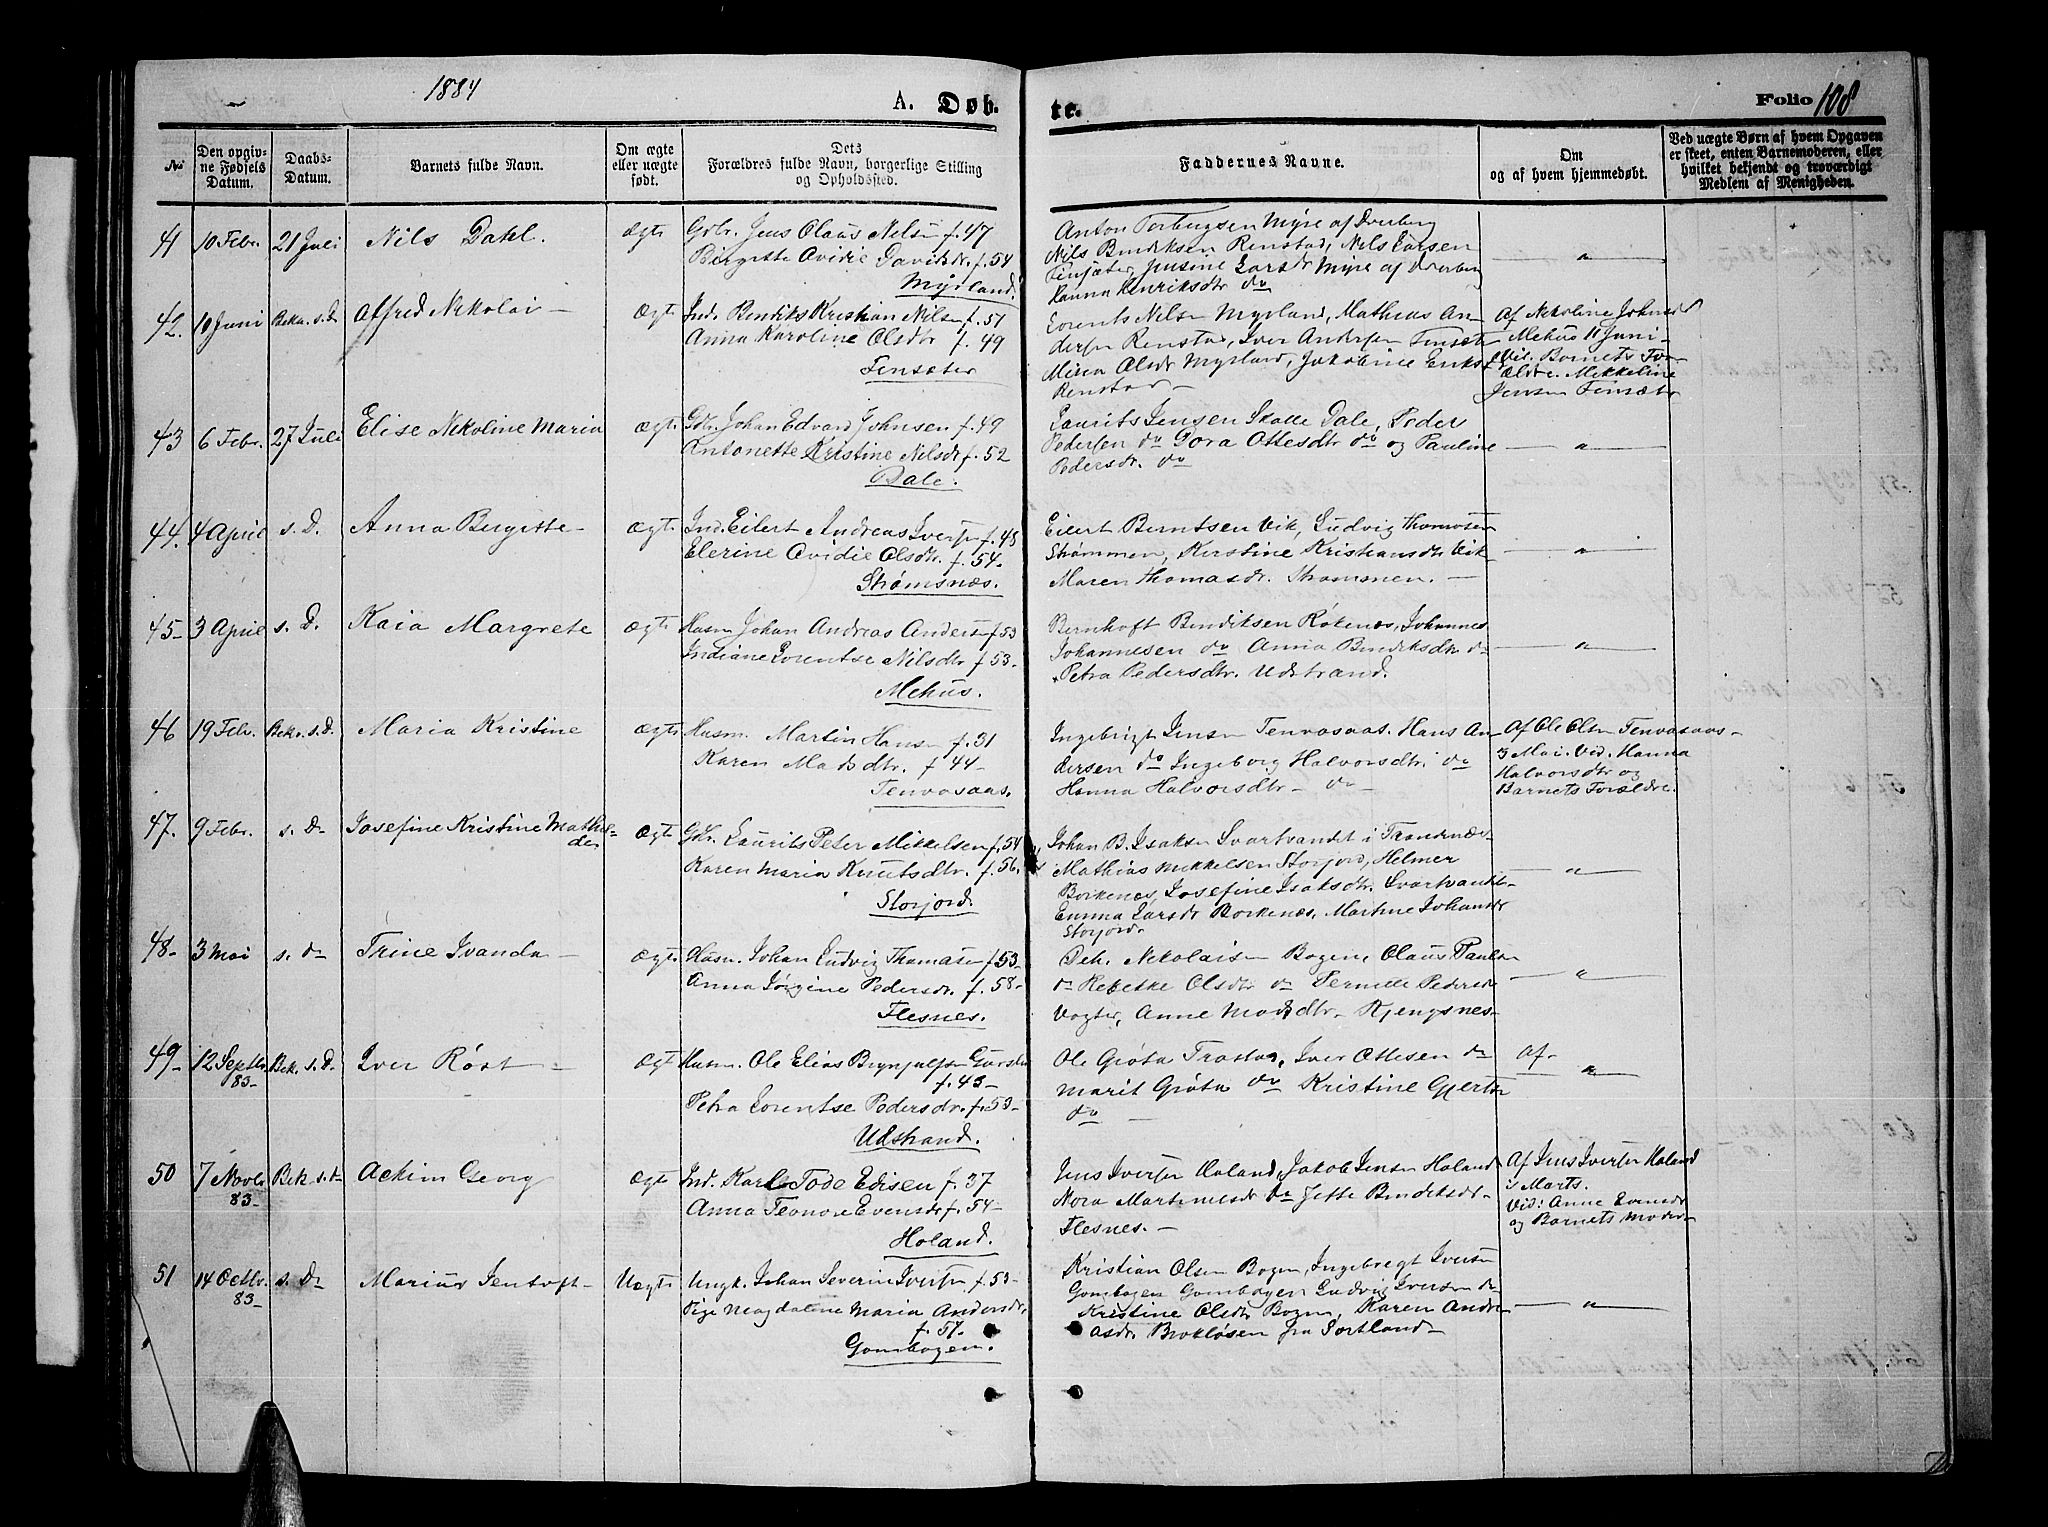 1884
A. Døb-
te.
Folio 108
No
Den opgivne Fødsels Datum.
Daabs-Datum.
Barnets fulde Navn.
Om ægte eller uægte født.
Dets Forældres fulde Navn, borgerlige Stilling og Opholdssted.
Faddernes Navne.
Om og af hvem hjemmedøbt.
Ved uægte Børn af hvem Opgaven er skeet, enten Barnemoderen, eller hvilket bekjendt og troværdigt Medlem af Menigheden.
41 10 Febr. 21 Juli Nils Dahl. ægte Gbr. Jens Olaus Nilsen f. 47
Birgitte Ovidie Davidsdr. f. 54
Myrland.
Anton Torbergsen Myre af Dverberg
Nils Bendiksen Renstad, Nils Larsen
Finsæter, Jensine Larsdr Myre af Dverberg
Hanna Henriksdtr do
42. 10 Juni Bekr. s. D Alfred Nikolai – Ægte Ind. Bendiks Kristian Nilsen f. 51
Anna Karoline Olsdtr f. 49
Finsæter
Lorents Nilsen Myrland, Mathias An-
dersen Renstad, Iver Andersen Finsæter
Mina Olsdr Myrland, Jakobine Eriksdr
Renstad –
Af Nikoline Johnsdr
Mehus 11 Juni –
Vid. Barnets For-
ældre. Mikkeline
Jensen Finsæter
43 6 Febr. 27 Juli Elise Nikoline Maria ægte Gbr. Johan Edvard Johnsen f. 49
Antonette Kristine Nilsdr f. 52
Dale.
Laurits Jensen Skalle Dale, Peder
Pedersen do Dora Ottesdtr do og Pauline
Pedersdr. do
44. 4 April s. D. Anna Birgitte – Ægte Ind. Eilert Andreas Iversen f. 48
Elerine Ovidie Olsdtr. f. 54 –
Strømsnæs.
Eilert Berntsen Vik, Ludvig Thomasen
Strømmen, Kirstine Kristiansdtr Vik
Maren Thomasdr. Strømmen. –
45 – 3 April s. D. Kaia Margrete ægte Husm Johan Andreas Andersen f. 53
Indiane Lorentse Nilsdtr f. 53 –
Mehus.
Bernhoft Bendiksen Røkenæs, Johannes
Johannesen do Anna Bendiksdtr do
Petra Pedersdtr. Udstrand.
46 19 Febr. Bekr. s. D. Maria Kristine ægte Husm. Martin Hansen f. 31
Karen Madsdtr. f 44 –
Tenvasaas.
Ingebrigt Jensen Tenvasaas. Hans An-
dersen do Ingeborg Halvorsdtr. do
Hanna Halvorsdtr – do –
Af Ole Olsen Tenvasaas –
3 Mai. Vid. Hanna
Halvorsdtr og
Barnets Forældre.
47. 9 Febr. s. D – Josefine Kristine Mathil-
de Ægte Gbr. Laurits Peter Mikkelsen f. 54
Karen Maria Knutsdtr. f. 56.
Storjord.
Johan B. Isaksen Svartvandet i Trondenæs –
Mathias Mikkelsen Storjord, Helmer
Borkenæs, Josefine Isaksdtr. Svartvandet –
Emma Larsdr Borkenæs, Martine Johansdr
Storjord.
48 – 3 Mai s. D – Trine Ivanda – Ægte Husm. Johan Ludvig Thomasen f. 53 –
Anna Jørgine Pedersdr. f. 58 –
Flesnes.
Nikolaisen Bogen, Olaus Paulsen
do Rebekke Olsdtr do Pernille Pedersdr
Vogter, Anne Madsdtr – Kjengsnes –
49 – 12 Septbr. 83 – Bek. s. D. Iver Røst – Ægte Husm. Ole Elias Brynjulfsen
f. 43 –
Petra Lorentse Pedersdr. f. 53 –
Udstrand.
Ole Grøta Trastad, Iver Ottesen do
Marit Grøta do Kristine Gjertsen
do –
Af –
50 7 Novbr 83 – Bek. s. D – Achim Georg ægte Ind. Karl Tode Edisen f. 37
Anna Leonore Evensdr f. 54 –
Holand.
Jens Iversen Holand, Jakob Jensen Holand
Nora Martinusdr do Jette Bendiksdr –
Flesnes. –
Af Jens Iversen Holand
i Marts.
Vid: Anne Evensdr
og Barnets Moder –
51 14 Octbr. 83 – s. D – Marius Jentoft – Uægte Ungk. Johan Severin Iversen f. 53 –
Pige Magdalene Maria Andersdr.
f. 57.
Gombogen.
Kristian Olsen Bogen, Ingebregt Iversen
Gombogen Gombogen Ludvig Iversen do
Kristine Olsdr Bogen, Karen Andre-
asdr Brokløsen fra Sortland –